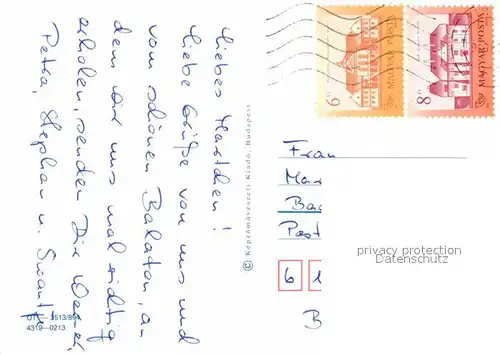 liebes Hartchen!
liebe Grüße von uns und
vom schönen Balaton, an
dem wir uns mal richtig
erholen, senden Dir Werner,
Petra, Stephan u. Swantje
4319-0213
© Képzőművészeti Kiadó, Budapest
6 Ft
MAGYAR POSTA
8 Ft
MAGYAR POSTA
Frau
Mar
Ba
Post
6 1
B
privacy protection
Datenschutz